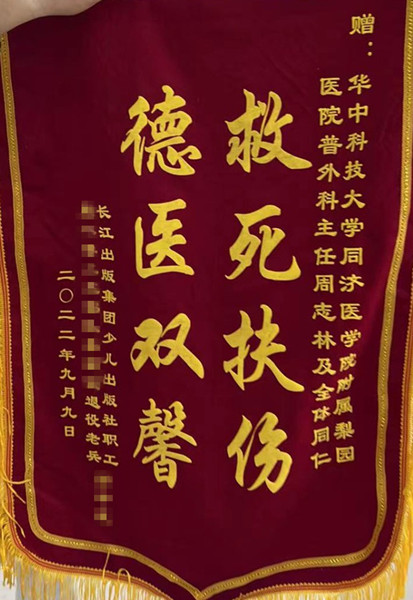 赠：华中科技大学同济医学院附属梨园
医院普外科主任周志林及全体同仁
救死扶伤
德医双馨
长江出版集团少儿出版社职工
退役老兵
二〇二二年九月九日